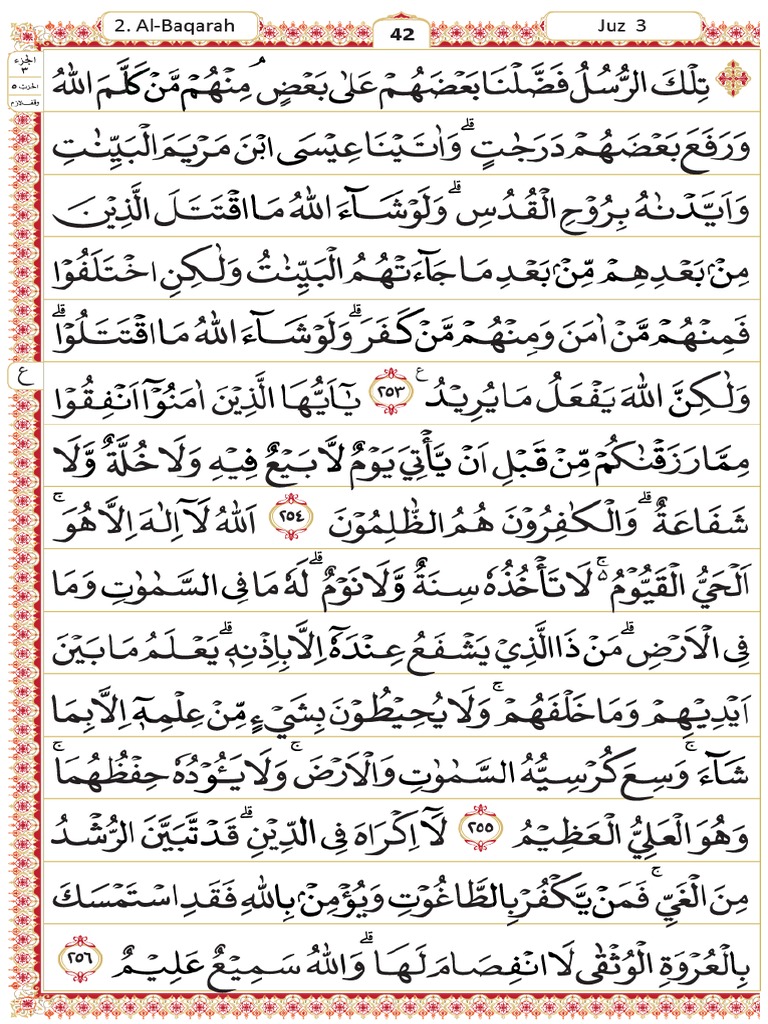 2. Al-Baqarah
42
Juz 3
الجزء
٣
الحزب ٥
وقف لازم
تِلْكَ الرُّسُلُ فَضَّلْنَا بَعْضَهُمْ عَلٰى بَعْضٍۘ مِنْهُمْ مَّنْ كَلَّمَ اللّٰهُ
وَرَفَعَ بَعْضَهُمْ دَرَجٰتٍۗ وَاٰتَيْنَا عِيْسَى ابْنَ مَرْيَمَ الْبَيِّنٰتِ
وَاَيَّدْنٰهُ بِرُوْحِ الْقُدُسِۗ وَلَوْ شَاۤءَ اللّٰهُ مَا اقْتَتَلَ الَّذِيْنَ
مِنْۢ بَعْدِهِمْ مِّنْۢ بَعْدِ مَا جَاۤءَتْهُمُ الْبَيِّنٰتُ وَلٰكِنِ اخْتَلَفُوْا
فَمِنْهُمْ مَّنْ اٰمَنَ وَمِنْهُمْ مَّنْ كَفَرَۗ وَلَوْ شَاۤءَ اللّٰهُ مَا اقْتَتَلُوْاۗ
وَلٰكِنَّ اللّٰهَ يَفْعَلُ مَا يُرِيْدُ ࣖ ٢٥٣ يٰٓاَيُّهَا الَّذِيْنَ اٰمَنُوْٓا اَنْفِقُوْا
ع
مِمَّا رَزَقْنٰكُمْ مِّنْ قَبْلِ اَنْ يَّأْتِيَ يَوْمٌ لَّا بَيْعٌ فِيْهِ وَلَا خُلَّةٌ وَّلَا
شَفَاعَةٌۗ وَالْكٰفِرُوْنَ هُمُ الظّٰلِمُوْنَ ٢٥٤ اَللّٰهُ لَآ اِلٰهَ اِلَّا هُوَۚ
اَلْحَيُّ الْقَيُّوْمُ ەۚ لَا تَأْخُذُهٗ سِنَةٌ وَّلَا نَوْمٌۗ لَهٗ مَا فِى السَّمٰوٰتِ وَمَا
فِى الْاَرْضِۗ مَنْ ذَا الَّذِيْ يَشْفَعُ عِنْدَهٗٓ اِلَّا بِاِذْنِهٖۗ يَعْلَمُ مَا بَيْنَ
اَيْدِيْهِمْ وَمَا خَلْفَهُمْۚ وَلَا يُحِيْطُوْنَ بِشَيْءٍ مِّنْ عِلْمِهٖٓ اِلَّا بِمَا
شَاۤءَۚ وَسِعَ كُرْسِيُّهُ السَّمٰوٰتِ وَالْاَرْضَۚ وَلَا يَـُٔوْدُهٗ حِفْظُهُمَاۚ
وَهُوَ الْعَلِيُّ الْعَظِيْمُ ٢٥٥ لَآ اِكْرَاهَ فِى الدِّيْنِۗ قَدْ تَّبَيَّنَ الرُّشْدُ
مِنَ الْغَيِّۚ فَمَنْ يَّكْفُرْ بِالطَّاغُوْتِ وَيُؤْمِنْۢ بِاللّٰهِ فَقَدِ اسْتَمْسَكَ
بِالْعُرْوَةِ الْوُثْقٰى لَا انْفِصَامَ لَهَاۗ وَاللّٰهُ سَمِيْعٌ عَلِيْمٌ ٢٥٦